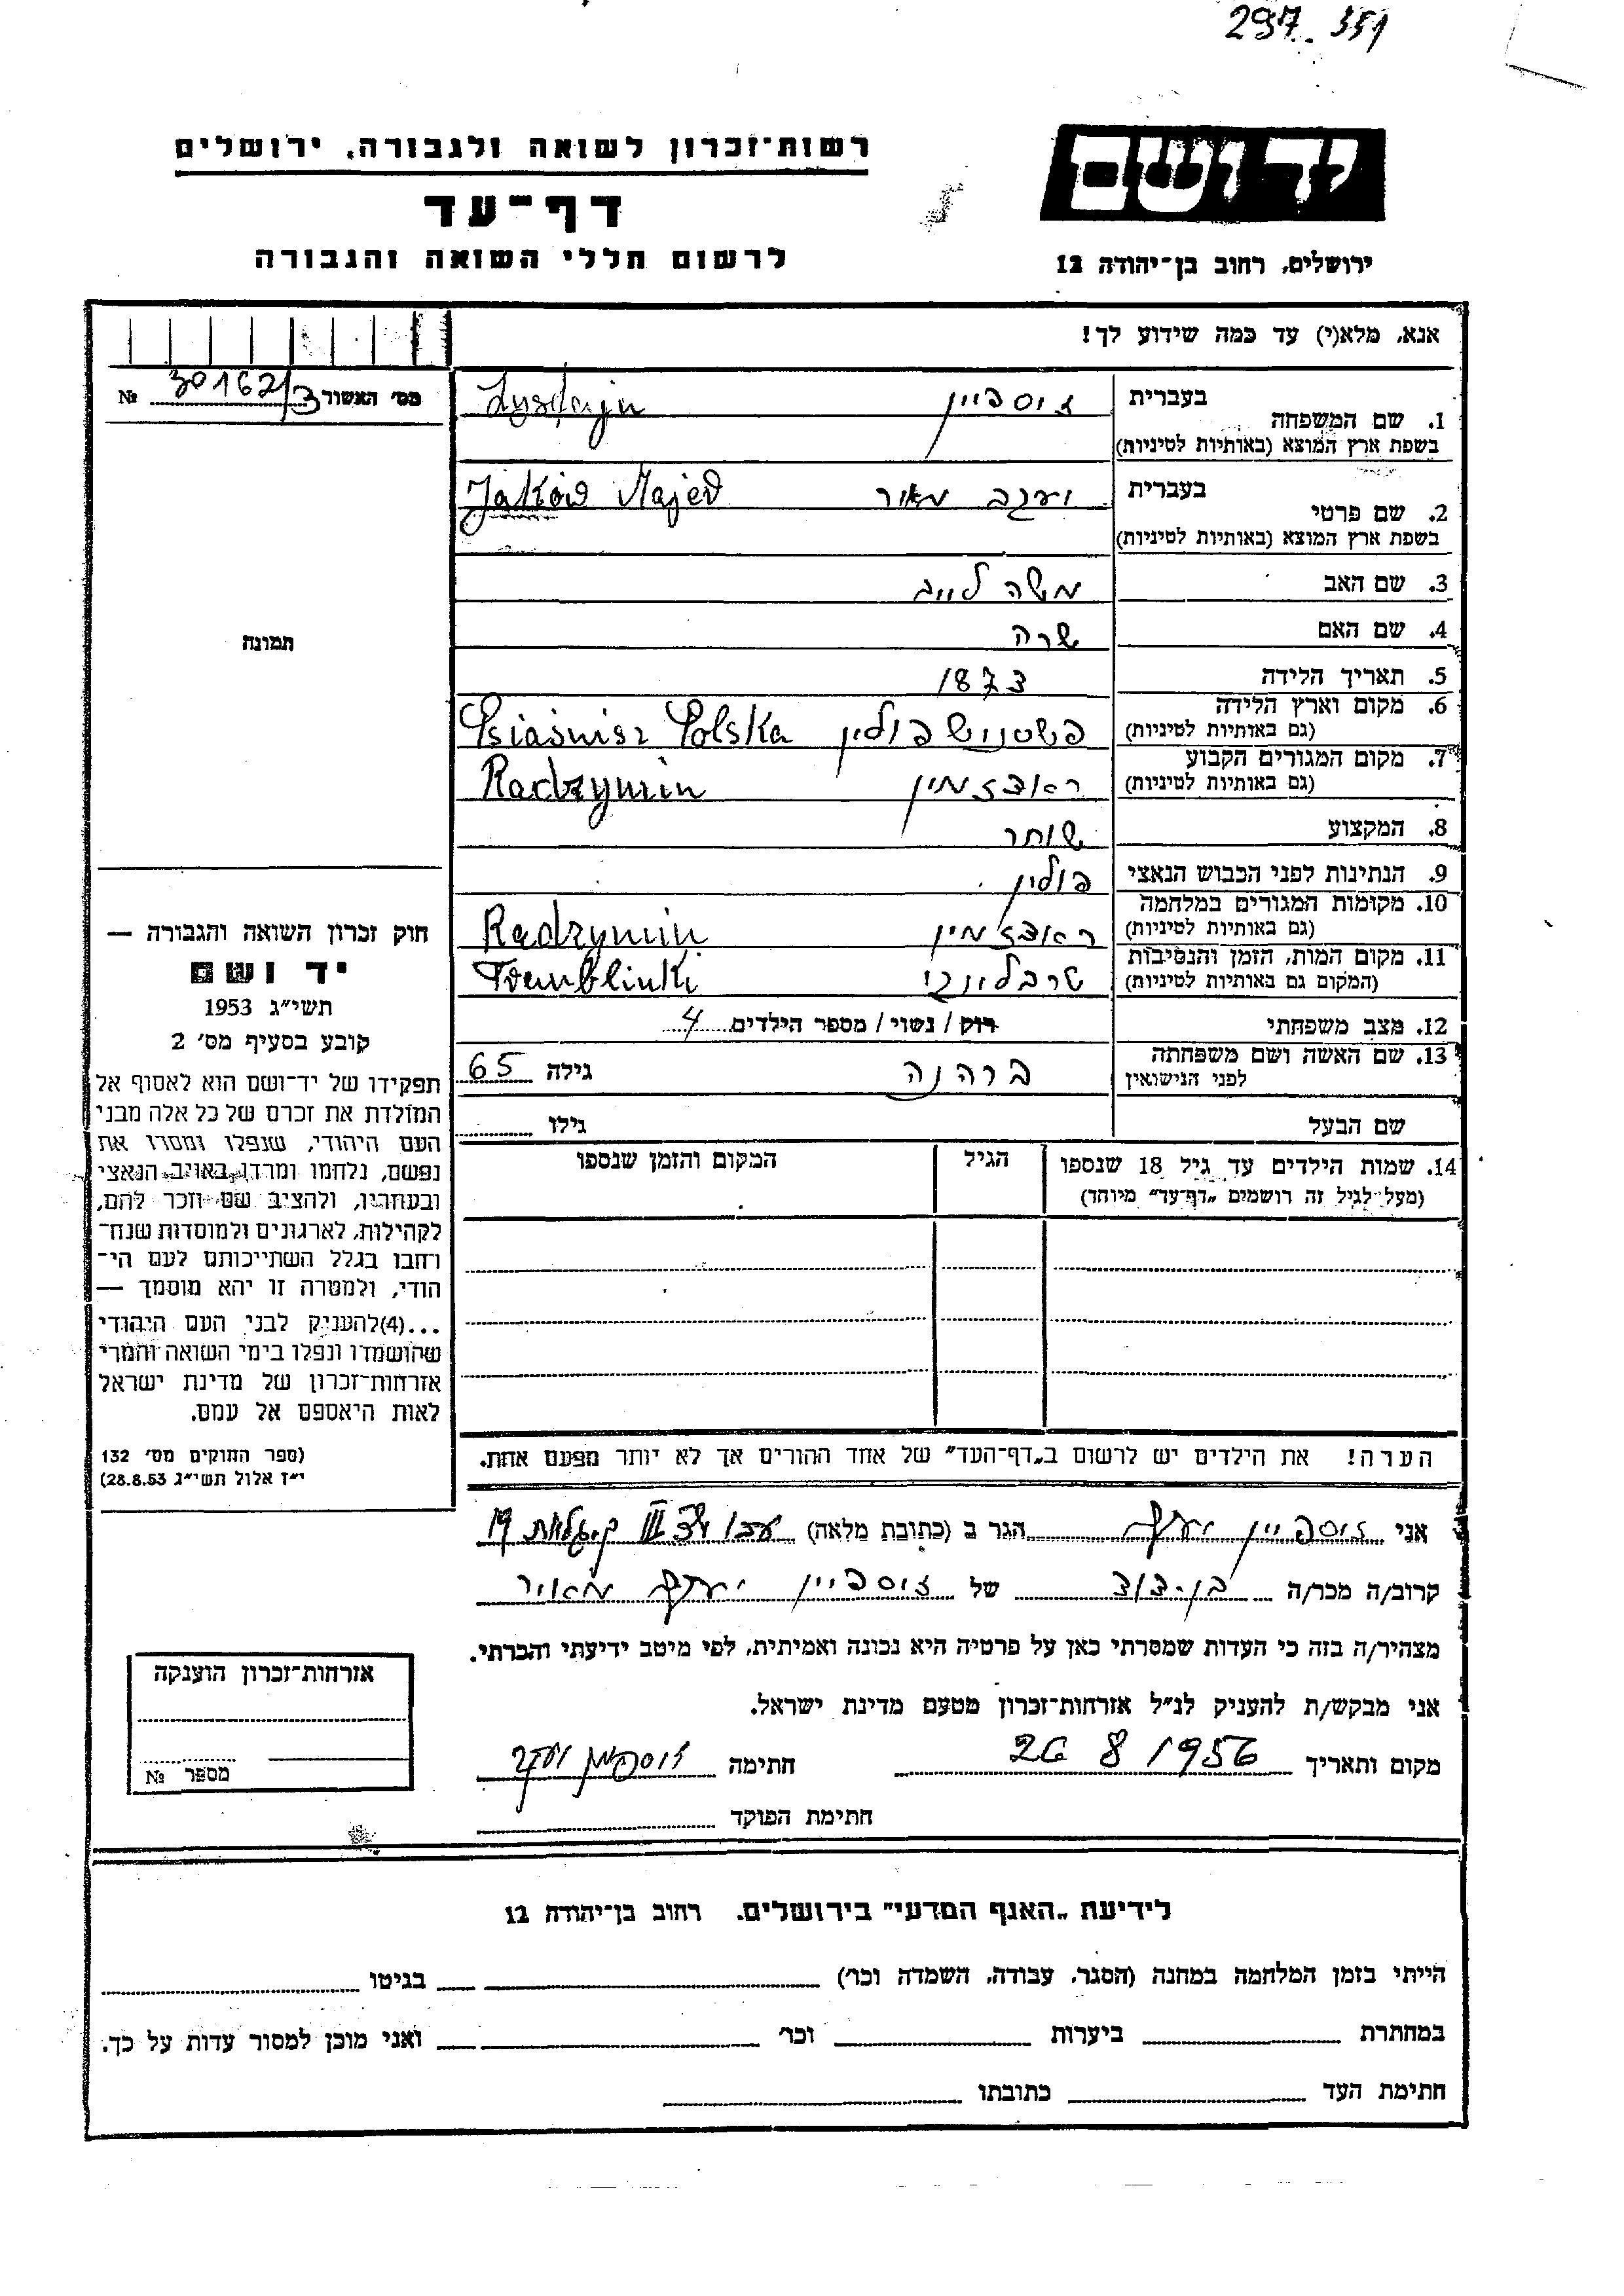 297.351
רשות־זכרון לשואה ולגבורה, ירושלים
ידושם
דף־עד
לרשום חללי השואה והגבורה
ירושלים, רחוב בן־יהודה 12
אנא, מלא(י) עד כמה שידוע לך!
מס׳ האשור 30162/3 №
1. שם המשפחה
בעברית זיספיין
בשפת ארץ המוצא (באותיות לטיניות)
2. שם פרטי
בעברית יעקב מאיר Majer
בשפת ארץ המוצא (באותיות לטיניות)
3. שם האב משה לייב
4. שם האם שרה
5. תאריך הלידה 1873
6. מקום וארץ הלידה פולין Polska
(גם באותיות לטיניות)
7. מקום המגורים הקבוע ראדזמין Radzymin
(גם באותיות לטיניות)
8. המקצוע סוחר
9. הנתינות לפני הכבוש הנאצי פולין
10. מקומות המגורים במלחמה ראדזמין Radzymin
(גם באותיות לטיניות)
11. מקום המות, הזמן והנסיבות טרבלינקי
(המקום גם באותיות לטיניות)
12. מצב משפחתי רוק / נשוי / מספר הילדים 4
13. שם האשה ושם משפחתה
לפני הנישואין גילה 65
שם הבעל גילו
14. שמות הילדים עד גיל 18 שנספו הגיל המקום והזמן שנספו
(מעל לגיל זה רושמים „דף־עד״ מיוחד)
הערה! את הילדים יש לרשום ב„דף־העד״ של אחד ההורים אך לא יותר מפעם אחת.
תמונה
חוק זכרון השואה והגבורה —
יד ושם
תשי״ג 1953
קובע בסעיף מס׳ 2
תפקידו של יד־ושם הוא לאסוף אל
המולדת את זכרם של כל אלה מבני
העם היהודי, שנפלו ומסרו את
נפשם, נלחמו ומרדו באויב הנאצי
ובעוזריו, ולהציב שם וזכר להם,
לקהילות, לארגונים ולמוסדות שנח־
רחבו בגלל השתייכותם לעם הי־
הודי, ולמטרה זו יהא מוסמך —
...(4)להעניק לבני העם היהודי
שהושמדו ונפלו בימי השואה והמרי
אזרחות־זכרון של מדינת ישראל
לאות היאספם אל עמם.
(ספר החוקים מס׳ 132
י״ז אלול תשי״ג 28.8.53)
אני זיספיין יעקב הגר ב (כתובת מלאה)
קרוב/ה מכר/ה בן-דוד של זיספיין יעקב מאיר
מצהיר/ה בזה כי העדות שמסרתי כאן על פרטיה היא נכונה ואמיתית, לפי מיטב ידיעתי והכרתי.
אני מבקש/ת להעניק לנ״ל אזרחות־זכרון מטעם מדינת ישראל.
מקום ותאריך 26 8 1956 חתימה זיספיין יעקב
חתימת הפוקד
אזרחות־זכרון הוענקה
מספר №
לידיעת „האגף המדעי״ בירושלים. רחוב בן־יהודה 12
הייתי בזמן המלחמה במחנה (הסגר, עבודה, השמדה וכר׳) בגיטו
במחתרת ביערות וכר׳ ואני מוכן למסור עדות על כך.
חתימת העד כתובתו